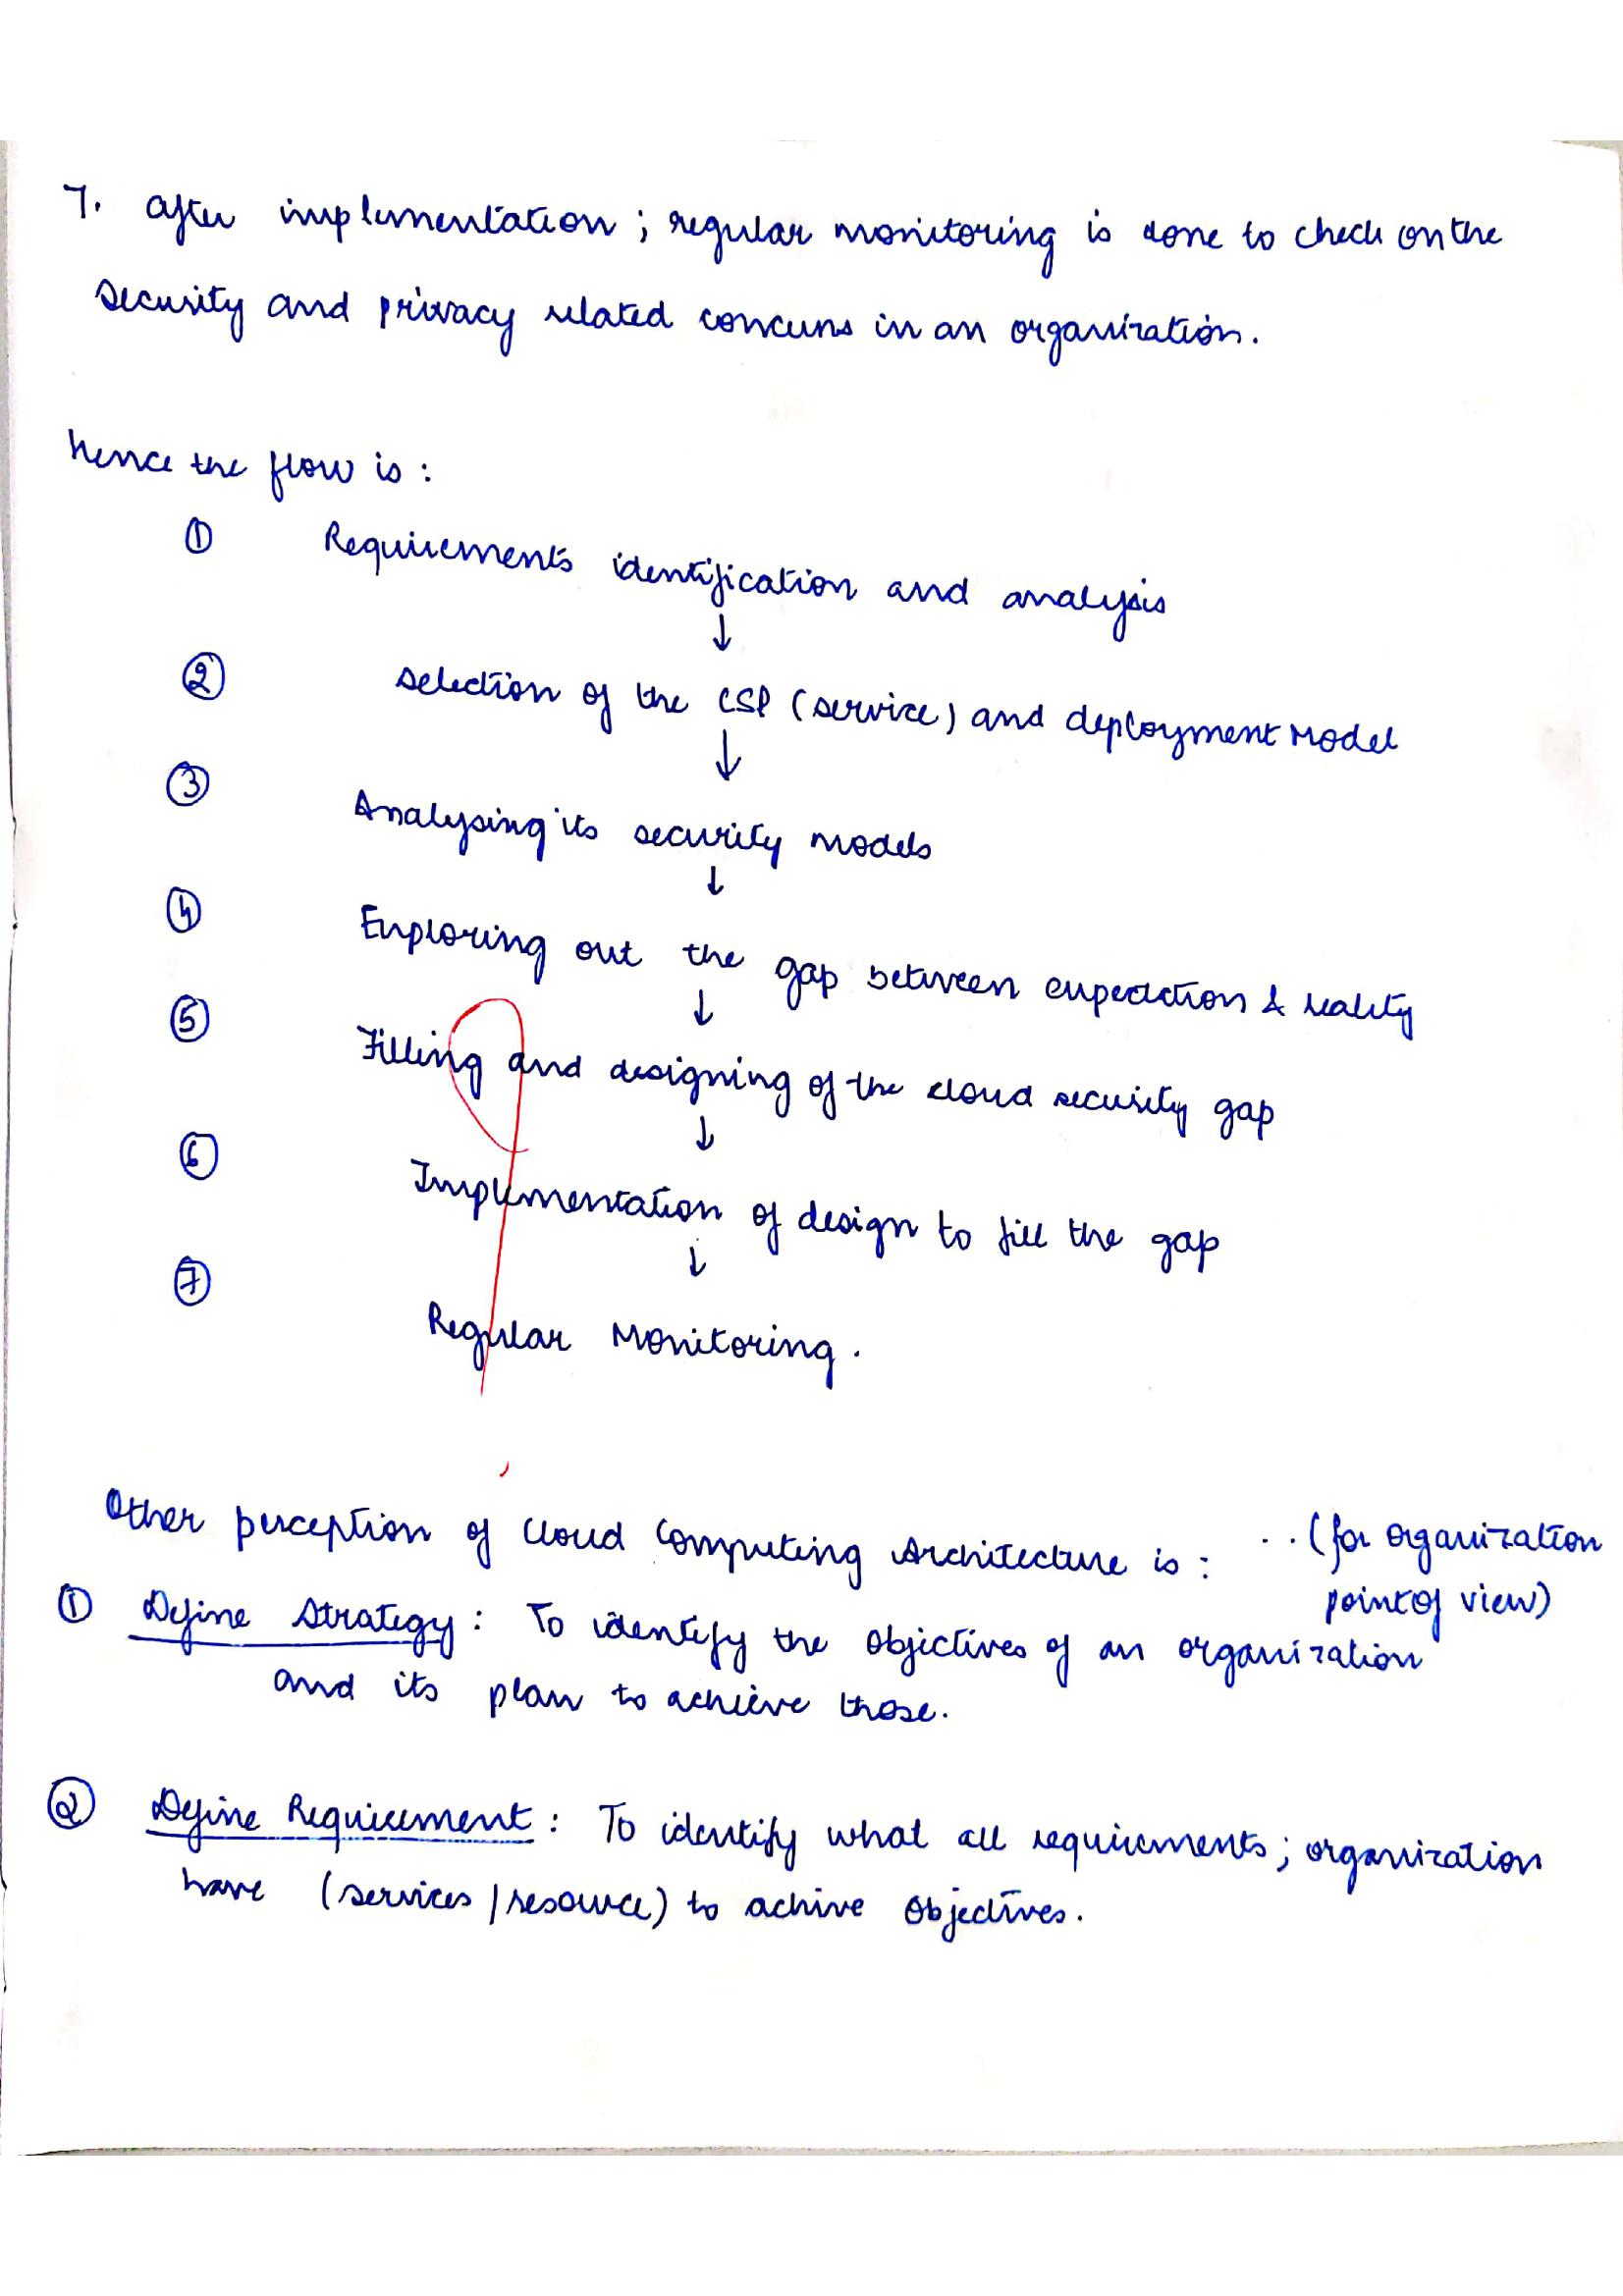 7. after implementation ; regular monitoring is done to check on the
security and privacy related concerns in an organization.
Hence the flow is :
① Requirements identification and analysis
↓
② Selection of the CSP (service) and deployment Model
↓
③ Analysing its security models
↓
④ Exploring out the gap between expectation & reality
↓
⑤ Filling and designing of the cloud security gap
↓
⑥ Implementation of design to fill the gap
↓
⑦ Regular Monitoring.
Other perception of cloud computing Architecture is : .. (for organization
point of view)
① Define Strategy : To identify the objectives of an organization
and its plan to achieve those.
② Define Requirement : To identify what all requirements ; organization
have (services / resource) to achive objectives.